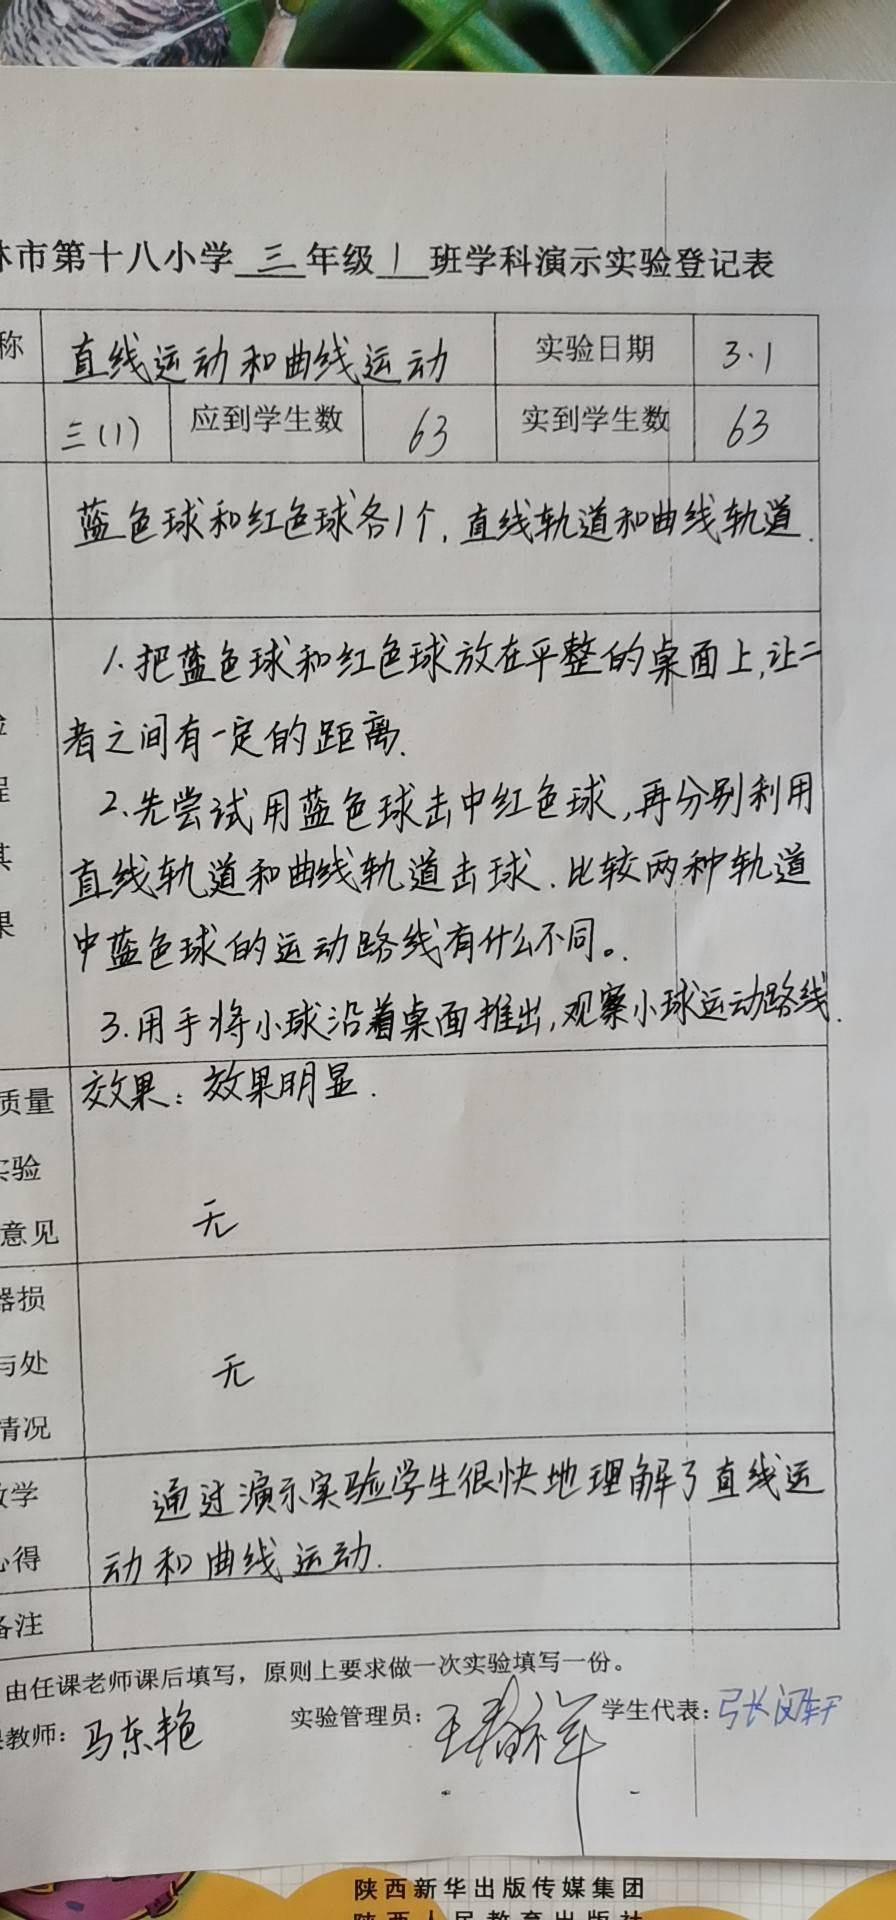 林市第十八小学 三 年级 1 班学科演示实验登记表
称 直线运动和曲线运动 实验日期 3.1
三(1) 应到学生数 63 实到学生数 63
蓝色球和红色球各1个,直线轨道和曲线轨道.
1.把蓝色球和红色球放在平整的桌面上,让二
者之间有一定的距离.
验
2.先尝试用蓝色球击中红色球,再分别利用
程
直线轨道和曲线轨道击球.比较两种轨道
其
果
中蓝色球的运动路线有什么不同。
3.用手将小球沿着桌面推出,观察小球运动路线.
质量 效果:效果明显.
实验
意见 无
器损
与处 无
情况
教学 通过演示实验学生很快地理解了直线运
心得 动和曲线运动.
备注
由任课老师课后填写,原则上要求做一次实验填写一份。
课教师:马东艳 实验管理员: 学生代表:
陕西新华出版传媒集团
陕西人民教育出版社